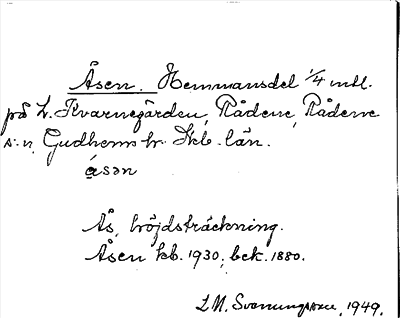 Åsen. Hemmansdel 1/4 mtl.
på L. Kvarnegården, Rådene, Rådene
s:n, Gudhems hr. Skb. län.
åsən
Ås, höjdsträckning.
Åsen kb. 1930; bek. 1880.
L M. 1949.